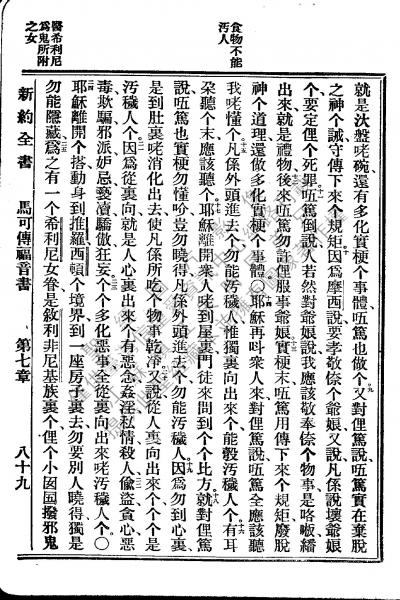 食物不能
污人
就是汏盤咾碗、還有多化實梗个事體、唔篤也做个、九又對俚篤說、唔篤實在棄脫
之神个誡、守傳下來个規矩、十因爲摩西說、要孝敬倷个爺娘、又說、凡係說壞爺娘
个、要定俚个死罪、十一唔篤倒說、人若然對爺娘說、我應該敬奉倷个物事、是咯嘣、繙
出來就是禮物、十二後來唔篤勿許俚服事爺娘、十三實梗末、唔篤用傳下來个規矩、廢脫
神个道理、還做多化實梗个事體、〇十四耶穌再呌衆人來、對俚篤說、唔篤全應該聽
我咾懂个、十五凡係外頭進去个、勿能污穢人、惟獨裏向出來个、能彀污穢人个、十六有耳
朶聽个末、應該聽个、十七耶穌離開衆人、咾到屋裏、門徒來問到个个比方、十八就對俚篤
說、唔篤也實梗勿懂吤、豈勿曉得凡係外頭進去个、勿能污穢人、十九因爲勿到心裏、
是到肚裏咾消化出去、使凡係所吃个物事乾淨、二十又說、從人裏向出來个、个个是
污穢人个、二一因爲從裏向、就是人心裏出來个、有惡念、姦淫、私情、殺人、二二偷盜、貪心、惡
毒、欺騙、邪派、妒忌、褻瀆、驕傲、狂妄、二三个个多化惡事、全從裏向出來咾污穢人个、〇
二四耶穌離開个搭、動身到推羅西頓个境界、到一座房子裏去、勿要別人曉得、獨是
勿能隱藏、二五爲之有一个希利尼女眷、是敘利非尼基族裏个、俚个小囡、撥邪鬼
醫希利尼
爲鬼所附
之女
新約全書 馬可傳福音書 第七章 八十九